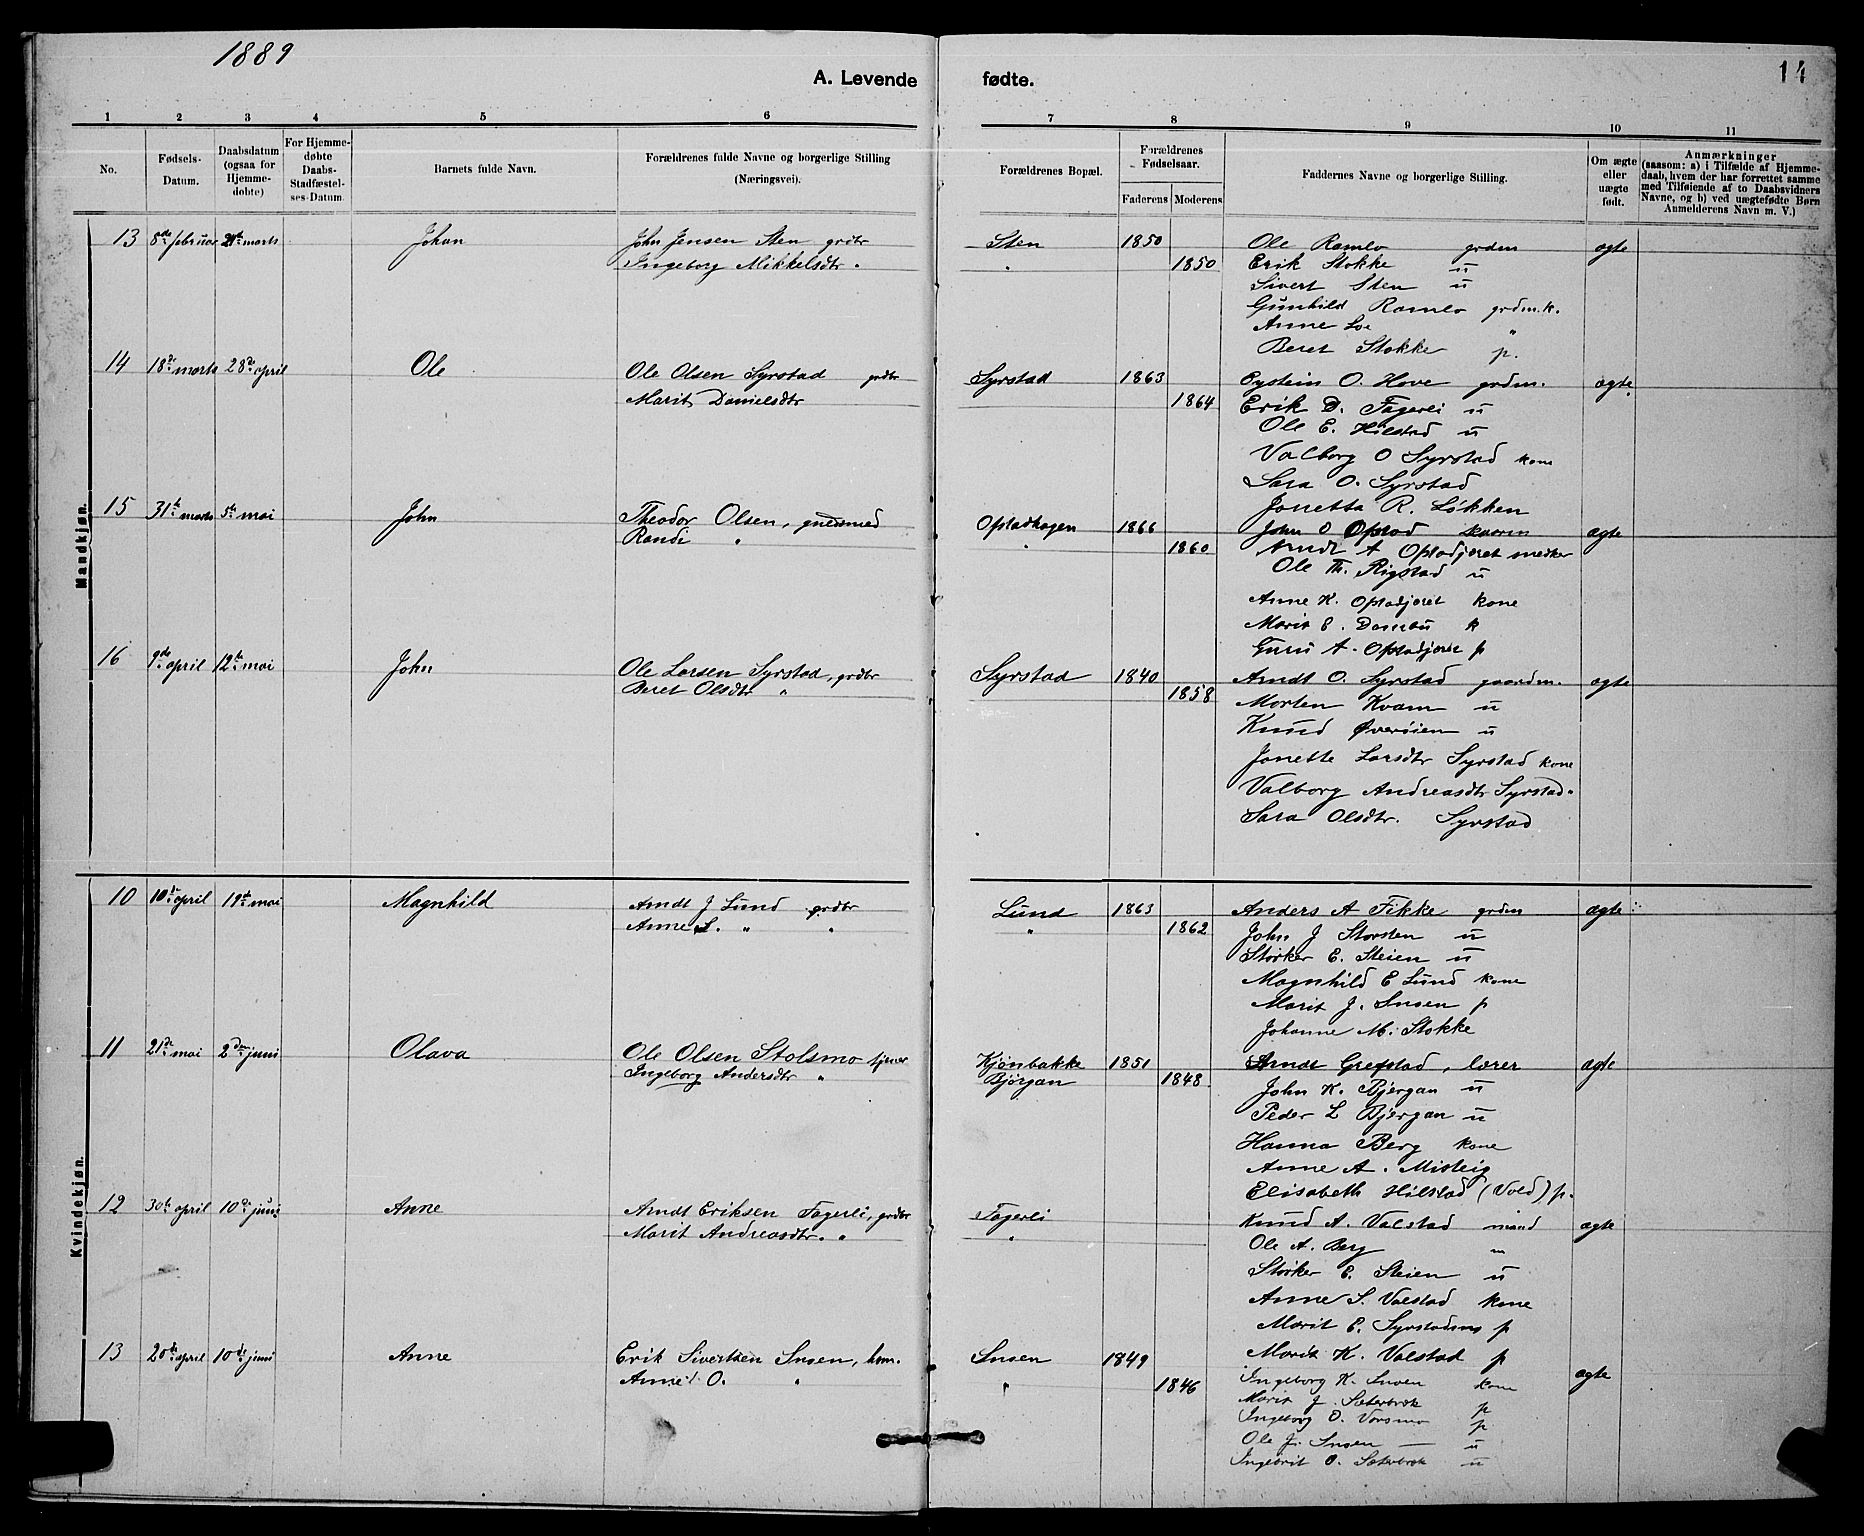 1889
A. Levende fødte.
14
1 2 3 4 5 6 7 8 9 10 11
No.
Fødsels-Datum.
Daabsdatum (ogsaa for Hjemme-døbte)
For Hjemme-døbte Daabs-Stadfæstel-ses-Datum.
Barnets fulde Navn.
Forældrenes fulde Navne og borgerlige Stilling (Næringsvei).
Forældrenes Bopæl.
Forældrenes Fødselsaar.
Faderens Moderens
Faddernes Navne og borgerlige Stilling.
Om ægte eller uægte født.
Anmærkninger
(saasom: a) i Tilfælde af Hjemme-
daab, hvem der har forrettet samme
med Tilføiende af to Daabsvidners
Navne, og b) ved uægtefødte Børn
Anmelderens Navn m. V.)
Mandkjøn.
13 8de februar 21de marts Johan John Jensen Sten grdbr Sten 1850 Ole Ramlo grdm ægte
Ingeborg Mikkelsdtr " " 1850 Erik Stokke u
Sivert Sten u
Gunhild Ramlo grdm.k.
Anne Loe "
Beret Stokke p.
14 18de marts 28de april Ole Ole Olsen Syrstad grdbr Syrstad 1863 Eystein O. Hove grdm. ægte
Marit Danielsdtr 1864 Erik D. Fagerli u
Ole E. Hilstad u
Valborg O Syrstad kone
Sara O. Syrstad
Jonetta R. Løkken
15 31te marts 5te mai John Theodor Olsen, Opstadhagen 1866 John O Opstad ægte
Randi " " 1860 Arndt A Opstadjøret snedker
Ole Th. Rigstad u
Anne K. Opstadjøret kone
Marit E. k
Guru A. Opstadjøret p
16 9de april 12te mai John Ole Larsen Syrstad, grdbr Syrstad 1840 Arndt O. Syrstad gaardm. ægte
Beret Olsdtr " 1858 Morten Kvam u
Knud Øverøien u
Jonette Larsdtr Syrstad kone
Valborg Andreasdtr Syrstad "
Sara Olsdtr. Syrstad
Kvindekjøn.
10 10de april 19de mai Magnhild Arndt J Lund grdbr Lund 1863 Anders A Fikke grdm ægte
Anne L. " " " 1862 John J Storsten u
Størker E. Steien u
Magnhild E Lund kone
Marit J. Snoen p
Johanne M. Stokke
11 21de mai 2den juni Olava Ole Olsen Stolsmo tjener Kjønbakke 1851 Arndt Grefstad, lærer ægte
Ingeborg Andersdtr " Bjørgan 1848 John K. Bjergan u
Peder L Bjergan u
Hanna Berg kone
Anne A. Misteig
Elisabeth Hilstad (Vold) p.
12 30te april 10de juni Anne Arndt Eriksen Fagerli, grdbr Fagerli Knud A. Valstad mand ægte
Marit Andreasdtr. " " Ole A. Berg
Størker E. Steien u
Anne S. Valstad kone
Marit E. Syrstadmo p
Marit K. Valstad p
13 20de april 10de juni Anne Erik Sivertsen Snoen, hsm. Snoen 1849 Ingeborg K. Snoen kone ægte
Anne O. " " 1846 Marit J. Sæterbøk p
Ingeborg O. Vorsmo p
Ole Js. Snoen — u
Ingebrit O. Sæterbøk u